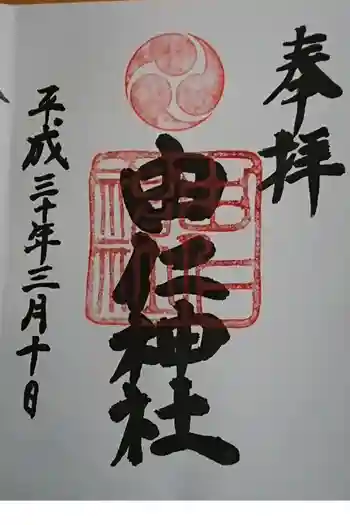 奉拝
由仁神社
平成三十年三月十日